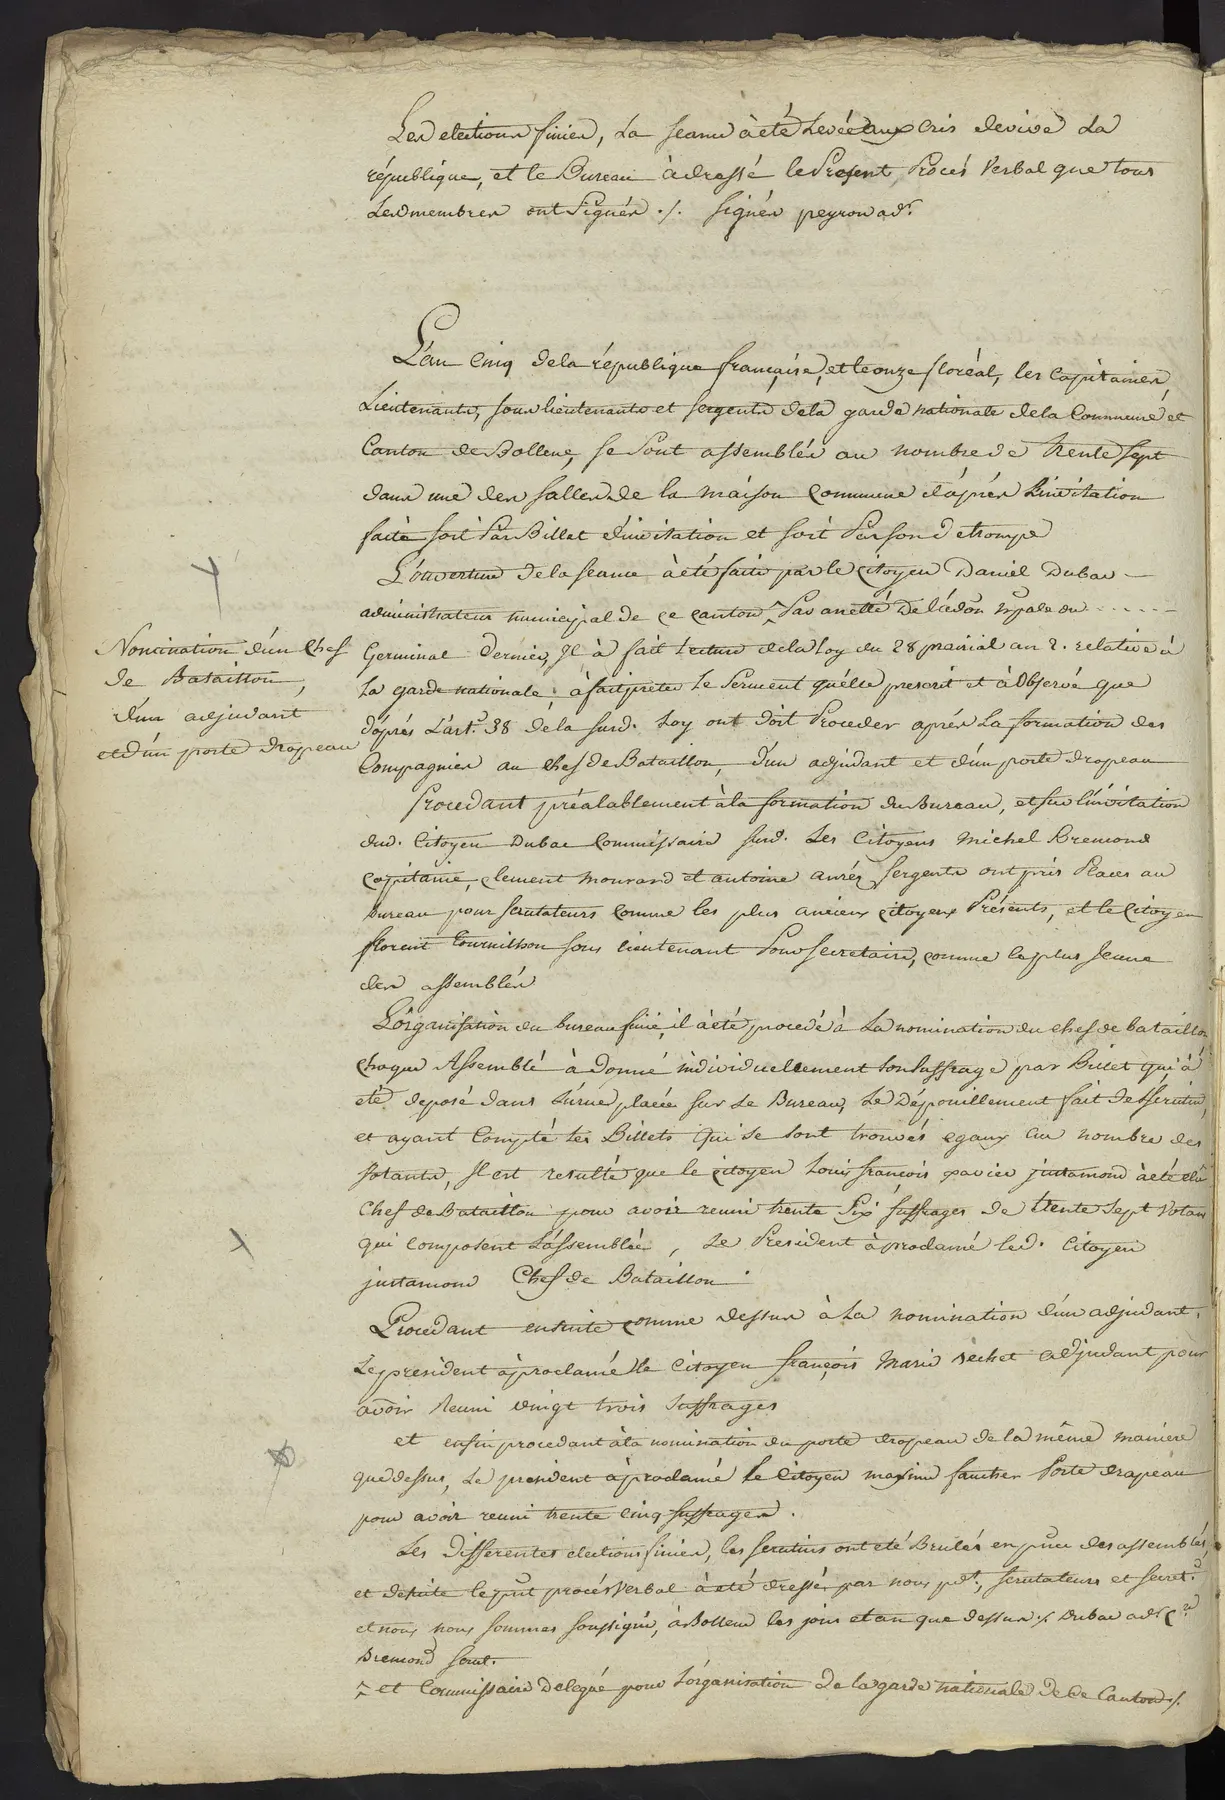 Les elections finies, La seance à été Levée aux Cris de vive La
république, et le Bureau à dressé le Present Procés Verbal que tous
Les membres ont signés ./. signés peyron adr.
L'an Cinq de la république française, et le onze floréal, les Capitaines,
Lieutenants, sous lieutenants et sergents de la garde nationale de la Commune et
Canton de Bollene, se sont assemblés au nombre de Trente sept
dans une des salles de la maison Commune d'aprés L'invitation
faite soit Par Billet d'invitation et soit Par son de trompe
L'ouverture de la seance à été faite par le citoyen Daniel Dubac
administrateur municipal de ce canton, ^ Par arretté De l'adon mpale du ......
Germinal dernier, Il à fait Lecture de la Loy du 28 prairial an 2. relative à
La garde nationale, à fait preter Le Serment qu'elle prescrit et à Observé que
d'aprés L'art. 38 de la susd. Loy ont doit Proceder aprés La formation des
Compagnies au Chef de Bataillon, d'un adjudant et d'un porte drapeau
Nomination d'un Chef
de Bataillon,
d'un adjudant
et d'un porte drapeau
Procedant préalablement à la formation du Bureau, et sur l'invitation
dud. Citoyen Dubac Commissaire susd. Les Citoyens Michel Bremond
Capitaine, Clement mourard et antoine aurés Sergents ont pris Places au
Bureau pour scrutateurs Comme les plus anciens Citoyens Présents, et le Citoyen
florent tournillon sous lieutenant Pour secretaire, comme le plus Jeune
des assemblés
L'organisation du bureau finie, il à été procedé à La nomination du chef de bataillon,
chaque Assemblé à donné individuellement son suffrage par Billet qui à
eté deposé dans L'urne placée sur Le Bureau, Le Dépouillement fait de scrutin,
et ayant Compté Les Billets qui se sont trouvés egaux au nombre des
Votants, Il est resulté que le citoyen Louis françois xavier justamond à été elu
Chef de Bataillon pour avoir reuni trente Six suffrages de trente Sept Votans
qui composent L'assemblée, Le President à proclamé led. Citoyen
justamond Chef de Bataillon.
Procedant ensuite comme dessus à La nomination d'un adjudant,
Le president à proclamé le Citoyen françois Marie sechet adjudant pour
avoir Reuni vingt trois suffrages
et enfin procedant à la nomination du porte drapeau de la même maniere
que dessus, Le president à proclamé le Citoyen maxime faucher Porte drapeau
pour avoir reuni trente cinq suffrages.
Les differentes elections finies, les scrutins ont été Brulés en pnce des assemblés,
et desuite le pnt procés verbal à été dressé par nous pdt, scrutateurs et secret.
et nous nous sommes soussigné, à Bollene les jour et an que dessus ./. Dubac adr. Cre
Bremond scrut.
^ et Commissaire Delegué pour L'organisation de la garde nationale de Ce Canton ./.